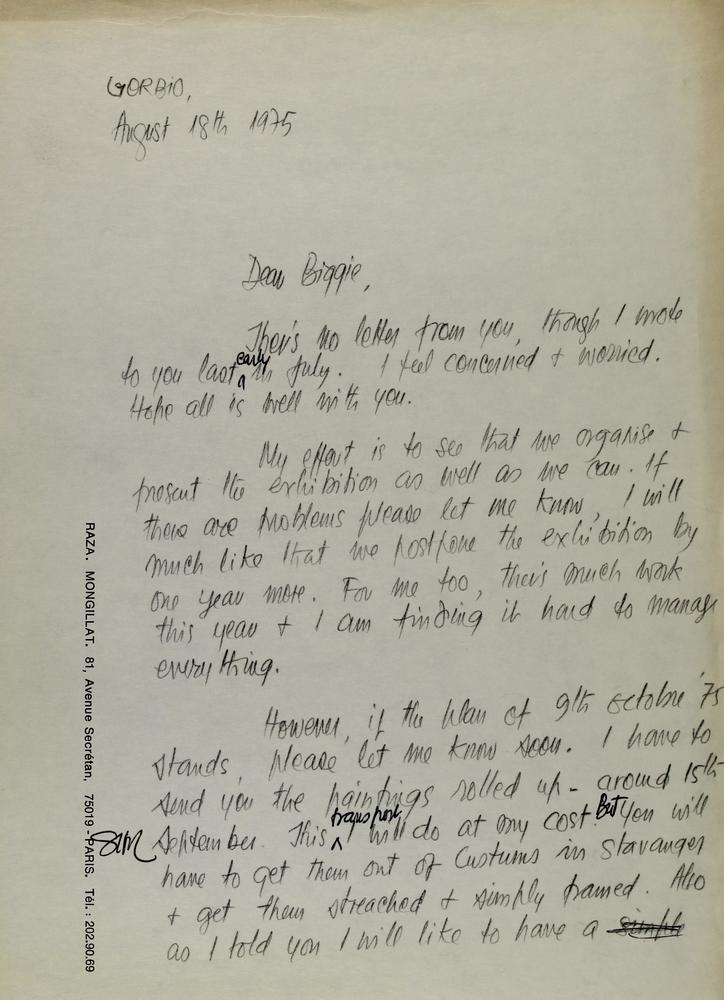 GORBIO,
August 18th 1975
Dear Biggie,
Ther's no letter from you, though I wrote
to you last early in July. I feel concerned + worried.
Hope all is well with you.
My effort is to see that we organise +
present the exhibition as well as we can. If
there are problems please let me know, I will
much like that we postpone the exhibition by
one year more. For me too, ther's much work
this year + I am finding it hard to manage
everything.
However, if the plan of 9th octobre '75
stands, please let me know soon. I have to
send you the paintings rolled up - around 15th
September. This transport will do at my cost. But you will
have to get them out of Customs in Stavanger
+ get them streached + simply framed. Also
as I told you I will like to have a simple
RAZA. MONGILLAT. 81, Avenue Secrétan, 75019 - PARIS. Tél.: 202.90.69